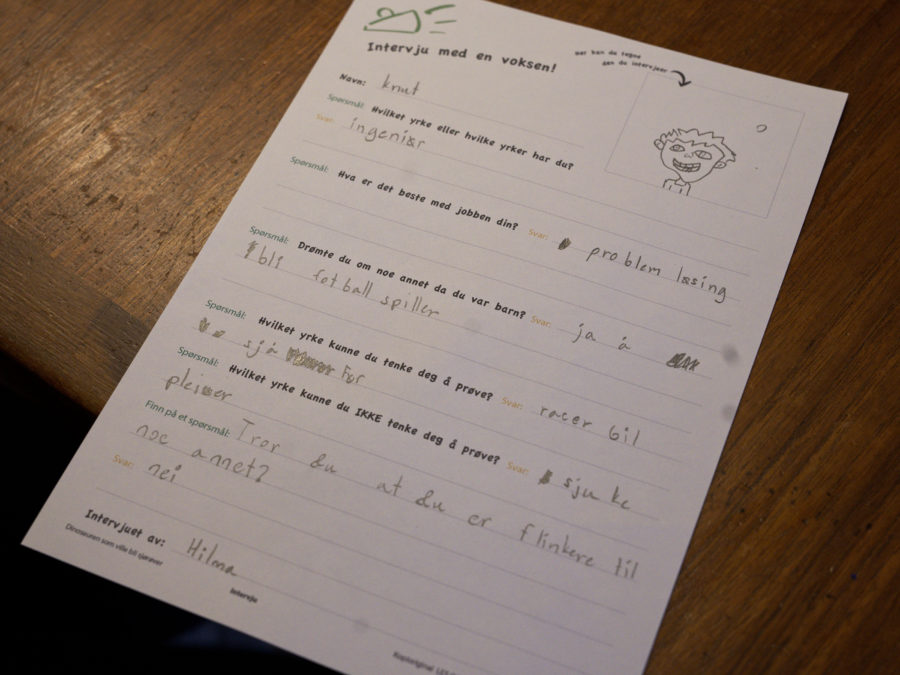 Intervju med en voksen!
Her kan du tegne
den du intervjuer
Navn: knut
Spørsmål: Hvilket yrke eller hvilke yrker har du?
Svar: ingeniør
Spørsmål: Hva er det beste med jobben din? Svar: problem løsing
Spørsmål: Drømte du om noe annet da du var barn? Svar: ja å
bli fotball spiller
Spørsmål: Hvilket yrke kunne du tenke deg å prøve? Svar: racer bil
sjå før
Spørsmål: Hvilket yrke kunne du IKKE tenke deg å prøve? Svar: sju ke
pleier
Finn på et spørsmål: Tror du at du er flinkere til
noe annet?
Svar: nei
Intervjuet av: Hilma
Dinosauren som ville bli sjørøver
Intervju
Kopioriginal